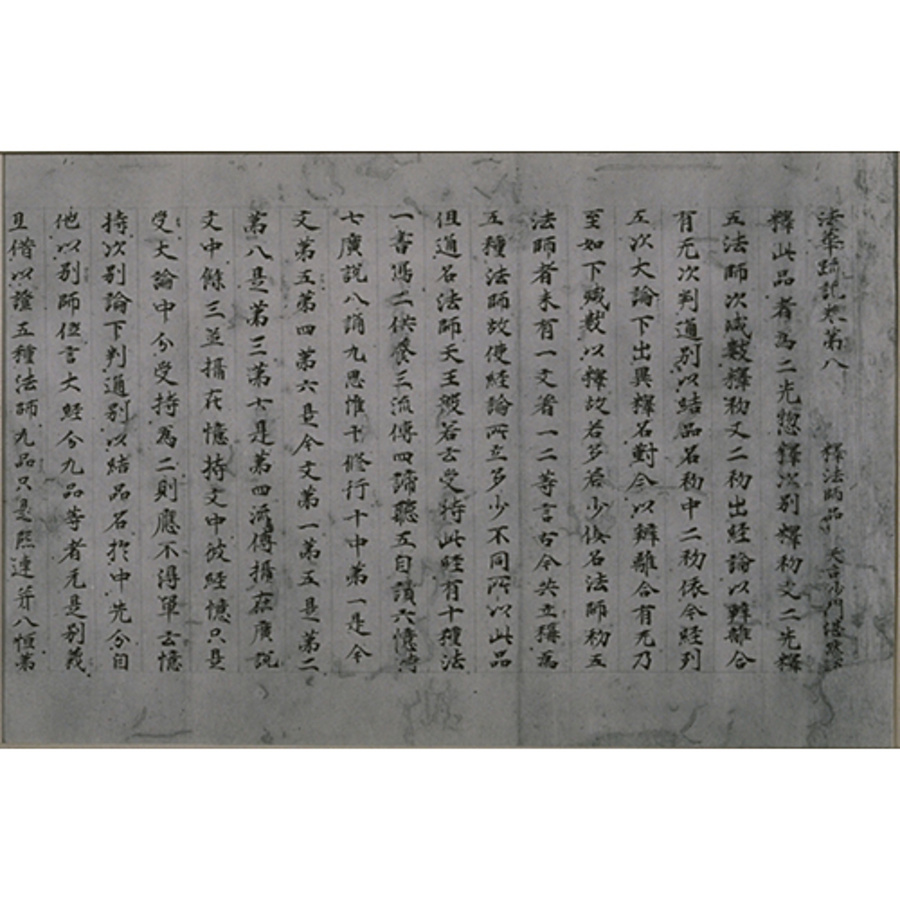 法華疏記卷第八 釋法師品 天台沙門湛然
釋此品者為二先惣釋次別釋初文二先釋
五法師次減數釋初又二初出經論以辨離合
有无次判通別以結品名初中二初依今經列
五次大論下出異釋名對今以辨離合有无乃
至如下減數以釋故若多若少俱名法師初五
法師者未有一文著一二等言古今共立稱為
五種法師故使經論所立多少不同所以此品
但通名法師天王般若云受持此經有十種法
一書寫二供養三流傳四諦聽五自讀六憶持
七廣說八誦九思惟十修行十中第一是今
文第五第四第六是今文第一第五是第二
第八是第三第七是第四流傳攝在廣說
文中餘三並攝在憶持文中彼經憶只是
受大論中分受持為二則應不得單云憶
持次別論下判通別以結品名於中先分自
他以別師位言大經分九品等者元是別義
且借以證五種法師九品只是熙連并八恒為